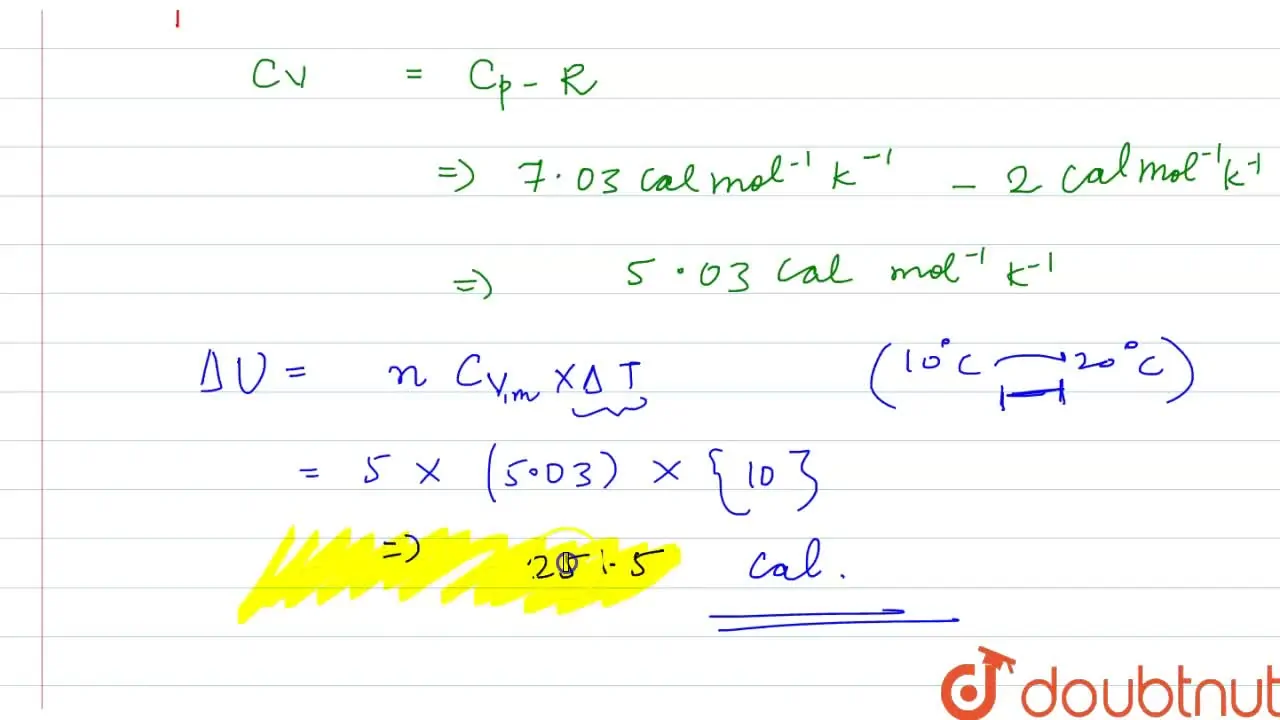 Cv = Cp - R
=> 7.03 cal mol⁻¹ k⁻¹ - 2 cal mol⁻¹ k⁻¹
=> 5.03 cal mol⁻¹ k⁻¹
ΔU = n Cv,m × ΔT (10°C → 20°C)
= 5 × (5.03) × {10}
=> 251.5 cal.
doubtnut